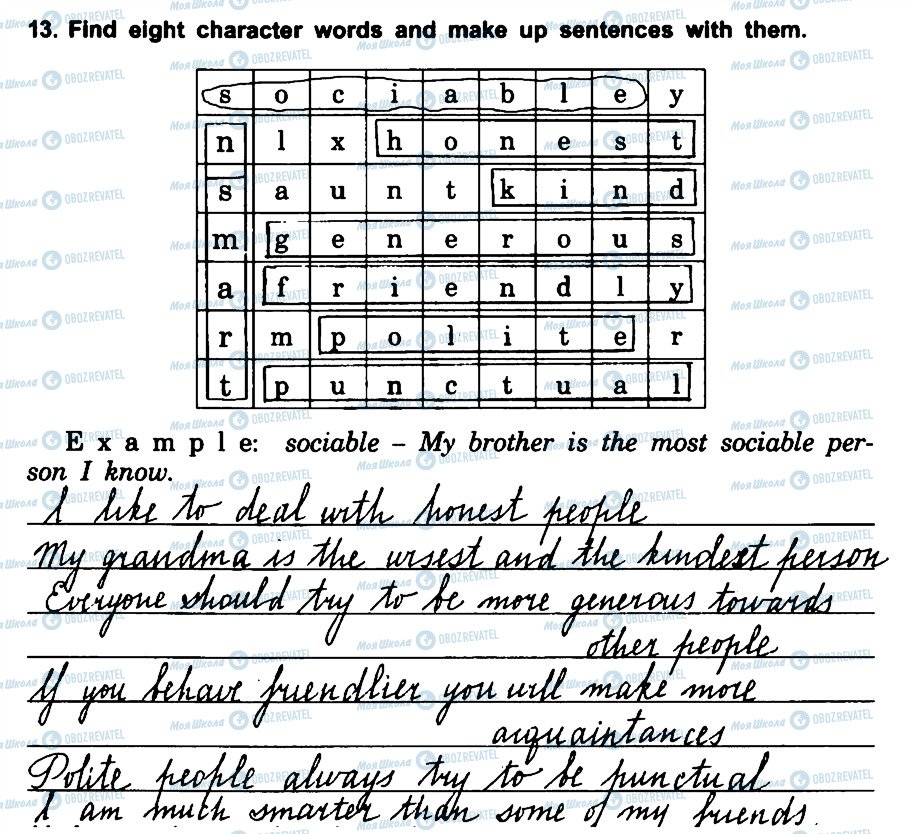 13. Find eight character words and make up sentences with them.
s o c i a b l e y
n l x h o n e s t
s a u n t k i n d
m g e n e r o u s
a f r i e n d l y
r m p o l i t e r
t p u n c t u a l
E x a m p l e: sociable – My brother is the most sociable per-
son I know.
I like to deal with honest people
My grandma is the wisest and the kindest person
Everyone should try to be more generous towards
other people
If you behave friendlier you will make more
acquaintances
Polite people always try to be punctual
I am much smarter than some of my friends.